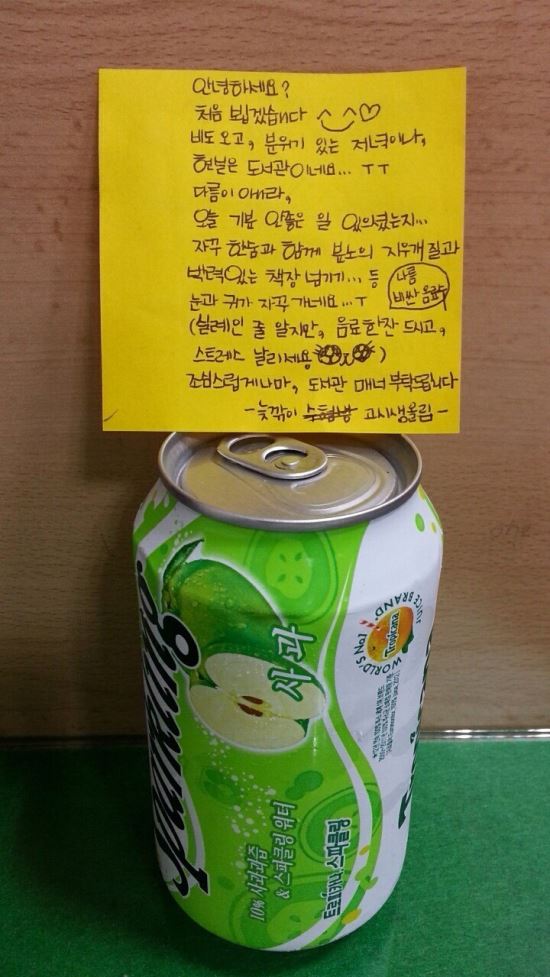 안녕하세요?
처음 뵙겠습니다 ^_^♡
비도 오고, 분위기 있는 저녁이나,
현실은 도서관이네요... ㅜㅜ
다름이 아니라,
오늘 기분 안좋은 일 있으셨는지...
자꾸 한숨과 함께 분노의 지우개 질과
박력있는 책장 넘기기... 등
나름 비싼 음료수
눈과 귀가 자꾸 가네요...ㅜ
(실례인 줄 알지만, 음료한잔 드시고,
스트레스 날리세용 )
조심스럽게나마, 도서관 매너 부탁드립니다
-늦깎이 고시생올림-
Sparkling
사과
10% 사과과즙
& 스파클링 워터
트로피카나 스파클링
WORLD'S No.1 JUICE BRAND
Tropicana